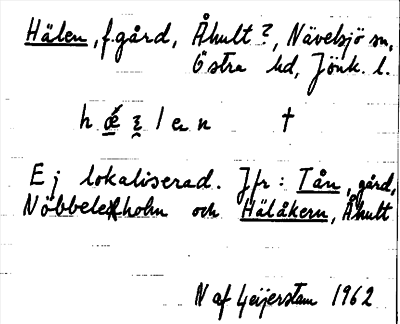 Hälen, f. gård, Åhult?, Nävelsjö sn,
Östra hd, Jönk. l.
h ǽ l e n †
Ej lokaliserad. Jfr: Tån, gård,
Nöbbeleholm och Hälåkern, Åhult
N af Geijerstam 1962